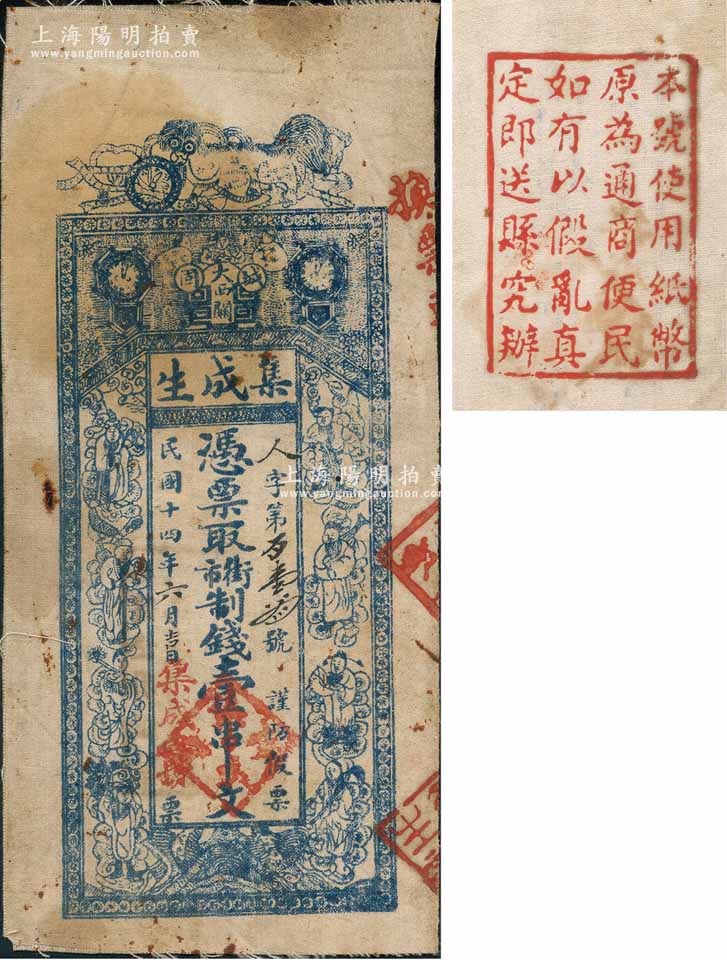 上海陽明拍賣
www.yangmingauction.com
大西關
集成生
人字第 號 謹防假票
憑票取街市制錢壹串文
民國十四年六月吉日集成 票
上海陽明拍賣
www.yangmingauction.com
本號使用紙幣
原為通商便民
如有以假亂真
定即送縣究辦